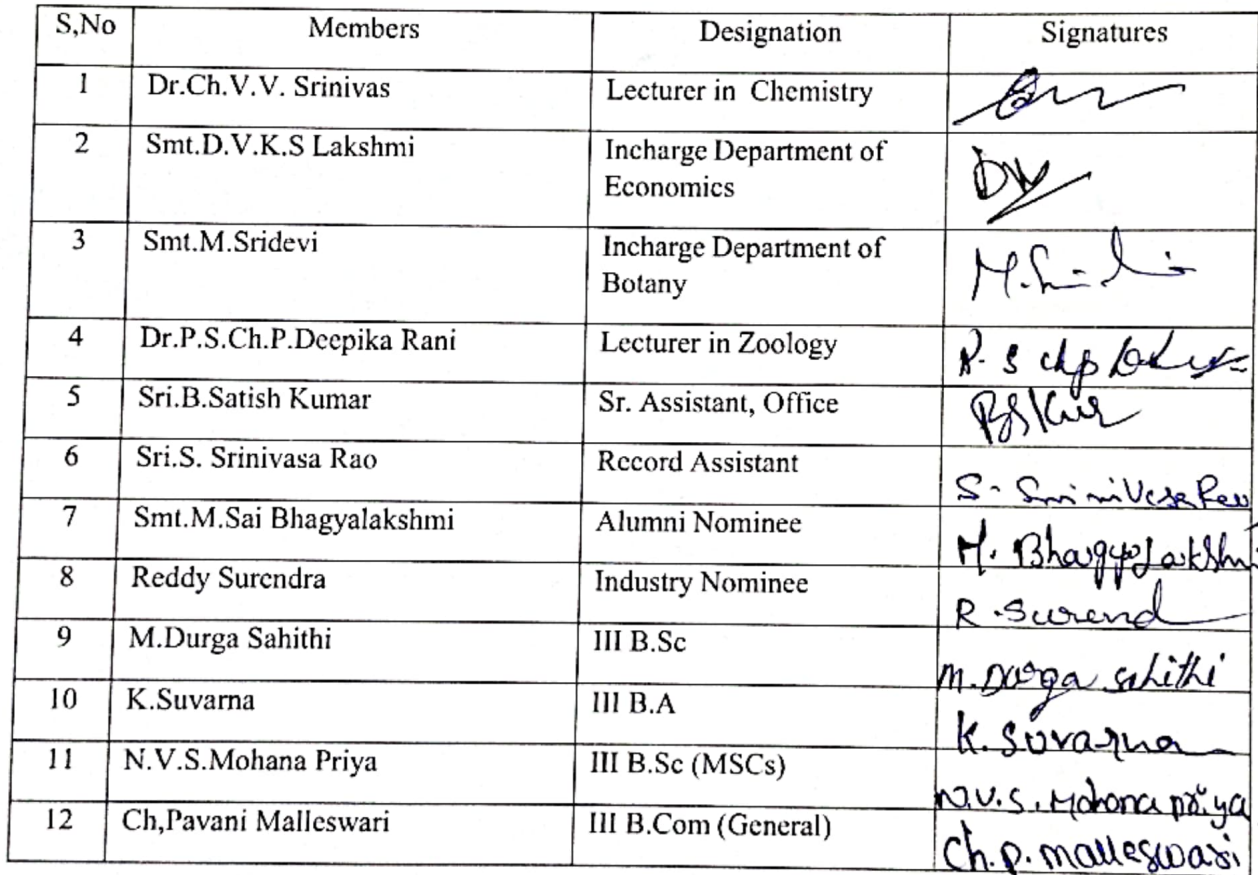 S,No Members Designation Signatures
1 Dr.Ch.V.V. Srinivas Lecturer in Chemistry
2 Smt.D.V.K.S Lakshmi Incharge Department of
Economics
3 Smt.M.Sridevi Incharge Department of
Botany
4 Dr.P.S.Ch.P.Deepika Rani Lecturer in Zoology
5 Sri.B.Satish Kumar Sr. Assistant, Office
6 Sri.S. Srinivasa Rao Record Assistant S. Srinivasa Rao
7 Smt.M.Sai Bhagyalakshmi Alumni Nominee M. Bhagyalakshmi
8 Reddy Surendra Industry Nominee R. Surend
9 M.Durga Sahithi III B.Sc M. Durga sahithi
10 K.Suvarna III B.A K. Suvarna
11 N.V.S.Mohana Priya III B.Sc (MSCs) N.V.S. Mohana priya
12 Ch,Pavani Malleswari III B.Com (General) Ch. P. malleswari